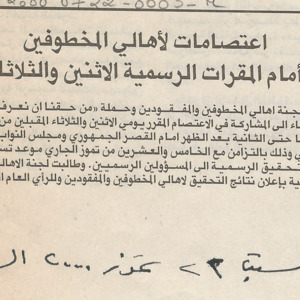 2000 0722-0003-M
اعتصامات لأهالي المخطوفين
أمام المقرات الرسمية الاثنين والثلاثا
لجنة اهالي المخطوفين والمفقودين وحملة «من حقنا ان نعرف
اء الى المشاركة في الاعتصام المقرر يومي الاثنين والثلاثاء المقبلين من
حتى الثانية بعد الظهر امام القصر الجمهوري ومجلس النواب
وذلك بالتزامن مع الخامس والعشرين من تموز الجاري موعد تس
تحقيق الرسمية الى المسؤولين الرسميين. وطالبت لجنة الاهال
ية بإعلان نتائج التحقيق لاهالي المخطوفين والمفقودين وللرأي العام
تموز ٢٠٠٠